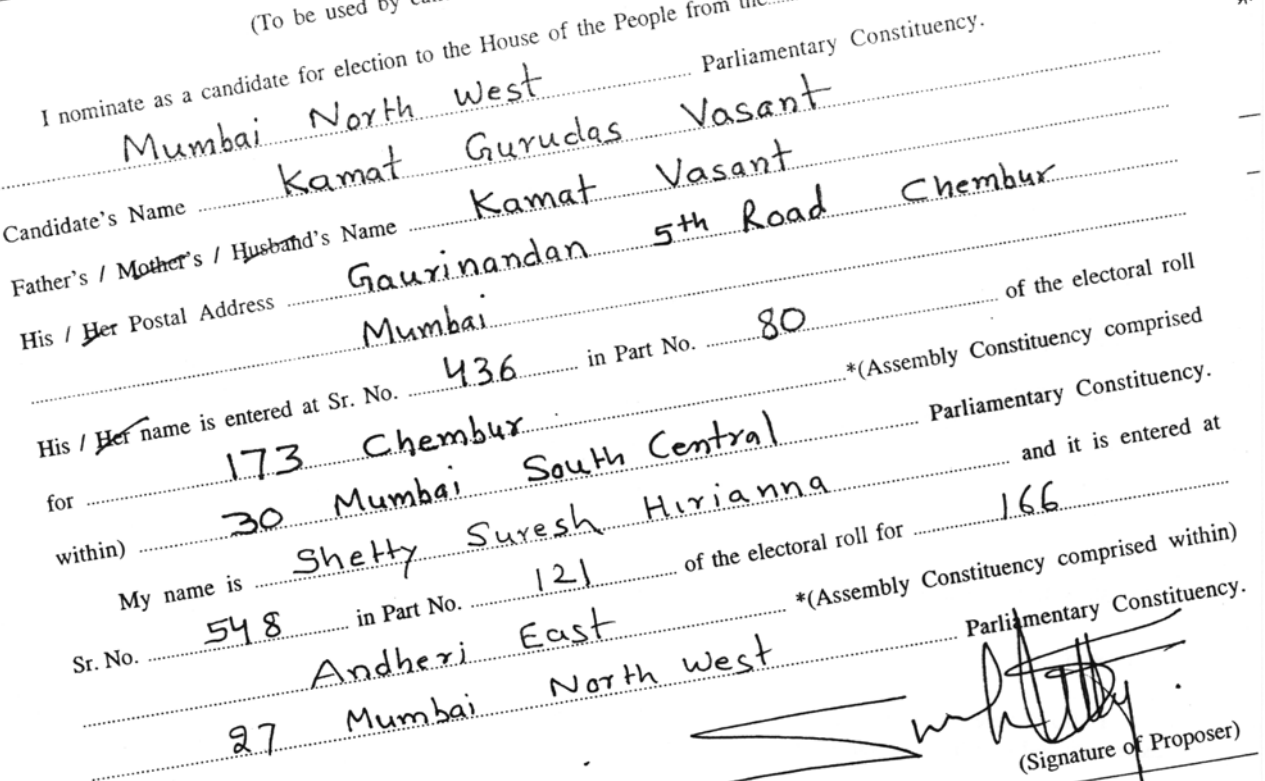 (To be used by
I nominate as a candidate for election to the House of the People from the
Mumbai North West Parliamentary Constituency.
Candidate's Name Kamat Gurudas Vasant
Father's / Mother's / Husband's Name Kamat Vasant
His / Her Postal Address Gaurinandan 5th Road Chembur
Mumbai
His / Her name is entered at Sr. No. 436 in Part No. 80 of the electoral roll
for 173 Chembur *(Assembly Constituency comprised
within) 30 Mumbai South Central Parliamentary Constituency.
My name is Shetty Suresh Hirianna and it is entered at
Sr. No. 548 in Part No. 121 of the electoral roll for 166
Andheri East *(Assembly Constituency comprised within)
27 Mumbai North West Parliamentary Constituency.
(Signature of Proposer)